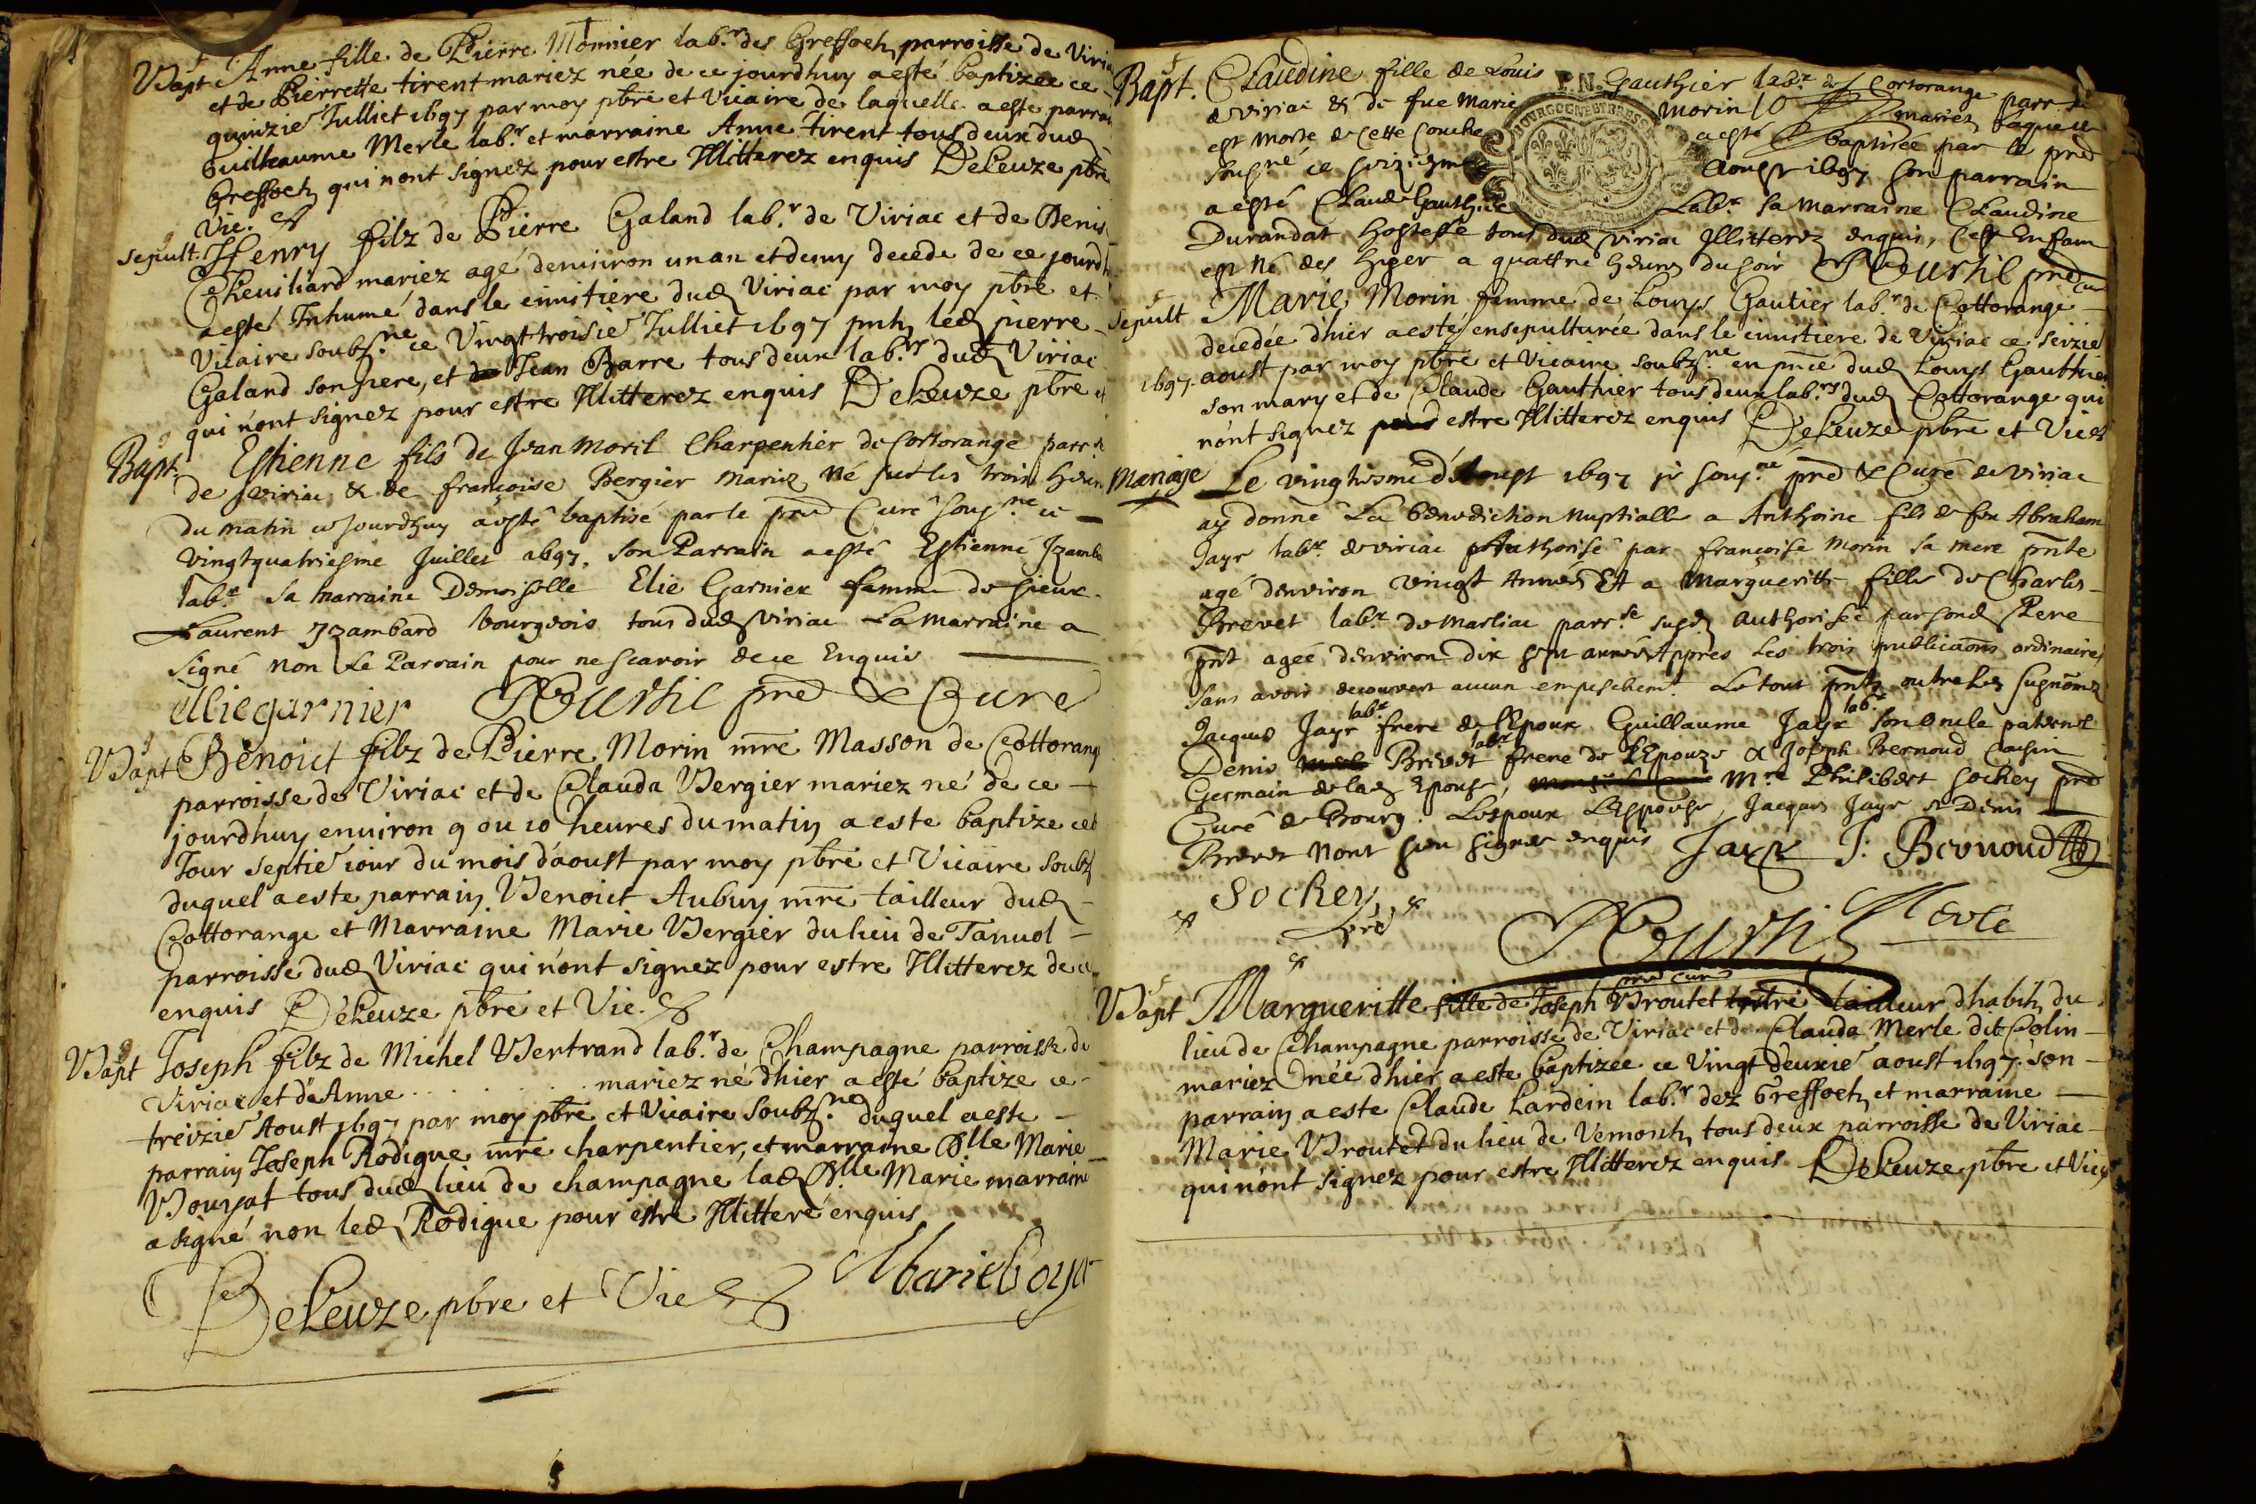 Bapt Anne fille de Pierre Monnier lab.r des Greffoetz parroisse de Viria
et de Pierrette tirent mariez née de ce jourdhuy a esté baptizée ce
quinzie Julliet 1697 par moy pbre et Vicaire de laquelle a este parrai
Guilleaume Merle lab.r et marraine Anne tirent tous deux dud
Greffoetz qui n'ont signez pour estre Illitterez enquis DeLeuze pbre
Vic. et
Sepult. Henry filz de Pierre Galand lab.r de Viriac et de Denis
Cheuiliard mariez agé denuiron un an et demy decede de ce jourdh
a esté Inhumé dans le cimitiere dud Viriac par moy pbre et
Vicaire soubz.né ce Vingt troisie Julliet 1697 pntz led pierre
Galand son pere, et Jean Barre tous deux lab.rs dud Viriac
qui n'ont signez pour estre Illitterez enquis DeLeuze pbre et
Bapt. Estienne fils de Jean Moril Charpentier de Cortorange parr
de Viriac & de françoise Bergier mariez né sur les trois heur
du matin ce jourdhuy a esté baptisé par le prd Curé sous.né ce
vingtquatriesme Juillet 1697. son Parrain a esté Estienne Jzamba
lab.r sa marraine Demoiselle Elie Garnier famme de sieur
Laurent Jzambard bourgeois tous dud Viriac La marraine a
signé non Le Parrain pour ne scavoir de ce Enquis
elliegarnier prd & Cure
Bapt Benoict filz de Pierre Morin mre Masson de Cottorang
parroisse de Viriac et de Clauda Bergier mariez né de ce
jourdhuy enuiron 9 ou 10 heures du matin a este baptize ce
Jour septie iour du mois d'aoust par moy pbre et Vicaire soubz
duquel a este parrain Benoict Aubuy mre tailleur dud
Cottorange et Marraine Marie Bergier du lieu de Tanuol
parroisse dud Viriac qui n'ont signez pour estre Illitterez de ce
enquis DeLeuze pbre et Vic.
Bapt Joseph filz de Michel Bertrand lab.r de Champagne parroisse de
Viriac et d'Anne . . . . . . mariez né dhier a esté baptize ce
treizie Aoust 1697 par moy pbre et Vicaire Soubz.né duquel a este
parrain Joseph Rodigue mre charpentier, et marraine Dlle Marie
tous dud lieu de champagne lad Dlle Marie marraine
a signé non led Rodigue pour estre Illitteré enquis
DeLeuze pbre et Vic Marie
Bapt. Claudine fille de Louis Gauthier lab.r de Cortorange parr de
de Viriac & de fue Marie Morin mariez laquelle
est morte de cette couche a esté baptisée par le prd
sous.né ce seiziesme Aoust 1697 son parrain
a esté Claude Gauthier Lab.r sa marraine Claudine
Durandat hostesse tous dud Viriac Illitterez enquis, Cest Enfam
est né des hier a quattre heures du soir prd cur
Sepult Marie Morin femme de Louys Gautier lab.r de Cottorange
decedée dhier a esté ensepulturée dans le cimitiere de Viriac ce seizie
1697. aoust par moy pbre et Vicaire soubz.né en pnce dud Louys Gauthier
son mary et de Claude Gauthier tous deux lab.rs dud Cottorange qui
n'ont signez pour estre Illitterez enquis DeLeuze pbre et Vic
Mariage Le vingtiesme d'Aoust 1697 je sous.né prd & Curé de Viriac
ay donné La benediction nuptialle a Anthoine fils de feu Abraham
Jayr lab.r de Viriac Authorisé par françoise Morin sa mere pnte
agé denviron vingt Années Et a Margueritte fille de Charles
Brevet lab.r de Marliac parr.se susd. authorisée par sond Pere
pnt agée denviron dix sept années Appres les trois publicaons ordinaires
sans avoir decouvert aucun empeschem.t Le tout pntz outre les susnomez
Jacques Jayr lab.r frere de lEpoux Guillaume Jayr lab.r son oncle paternel
Denis Brevet lab.r frere de LEpouze & Joseph Bernoud cousin
Germain de lad Epouse, M.re Philibert Sochey prd
Curé de Bourg. Lespoux LEspouse, Jacques Jayr & Denis
Brevet nont sceu signer enquis Jayr J: Bernoud
Sochey prd
Merle
prd cure
Bapt Margueritte fille de Joseph Broutet tailleur dhabitz du
lieu de Champagne parroisse de Viriac et de Clauda Merle dit Colin
mariez née dhier a este baptizée ce vingt deuxie aoust 1697. son
parrain a este Claude Lardein lab.r dez Greffoetz et marraine
Marie Broutet du lieu de tous deux parroisse de Viriac
qui n'ont signez pour estre Illitterez enquis DeLeuze pbre et Vic